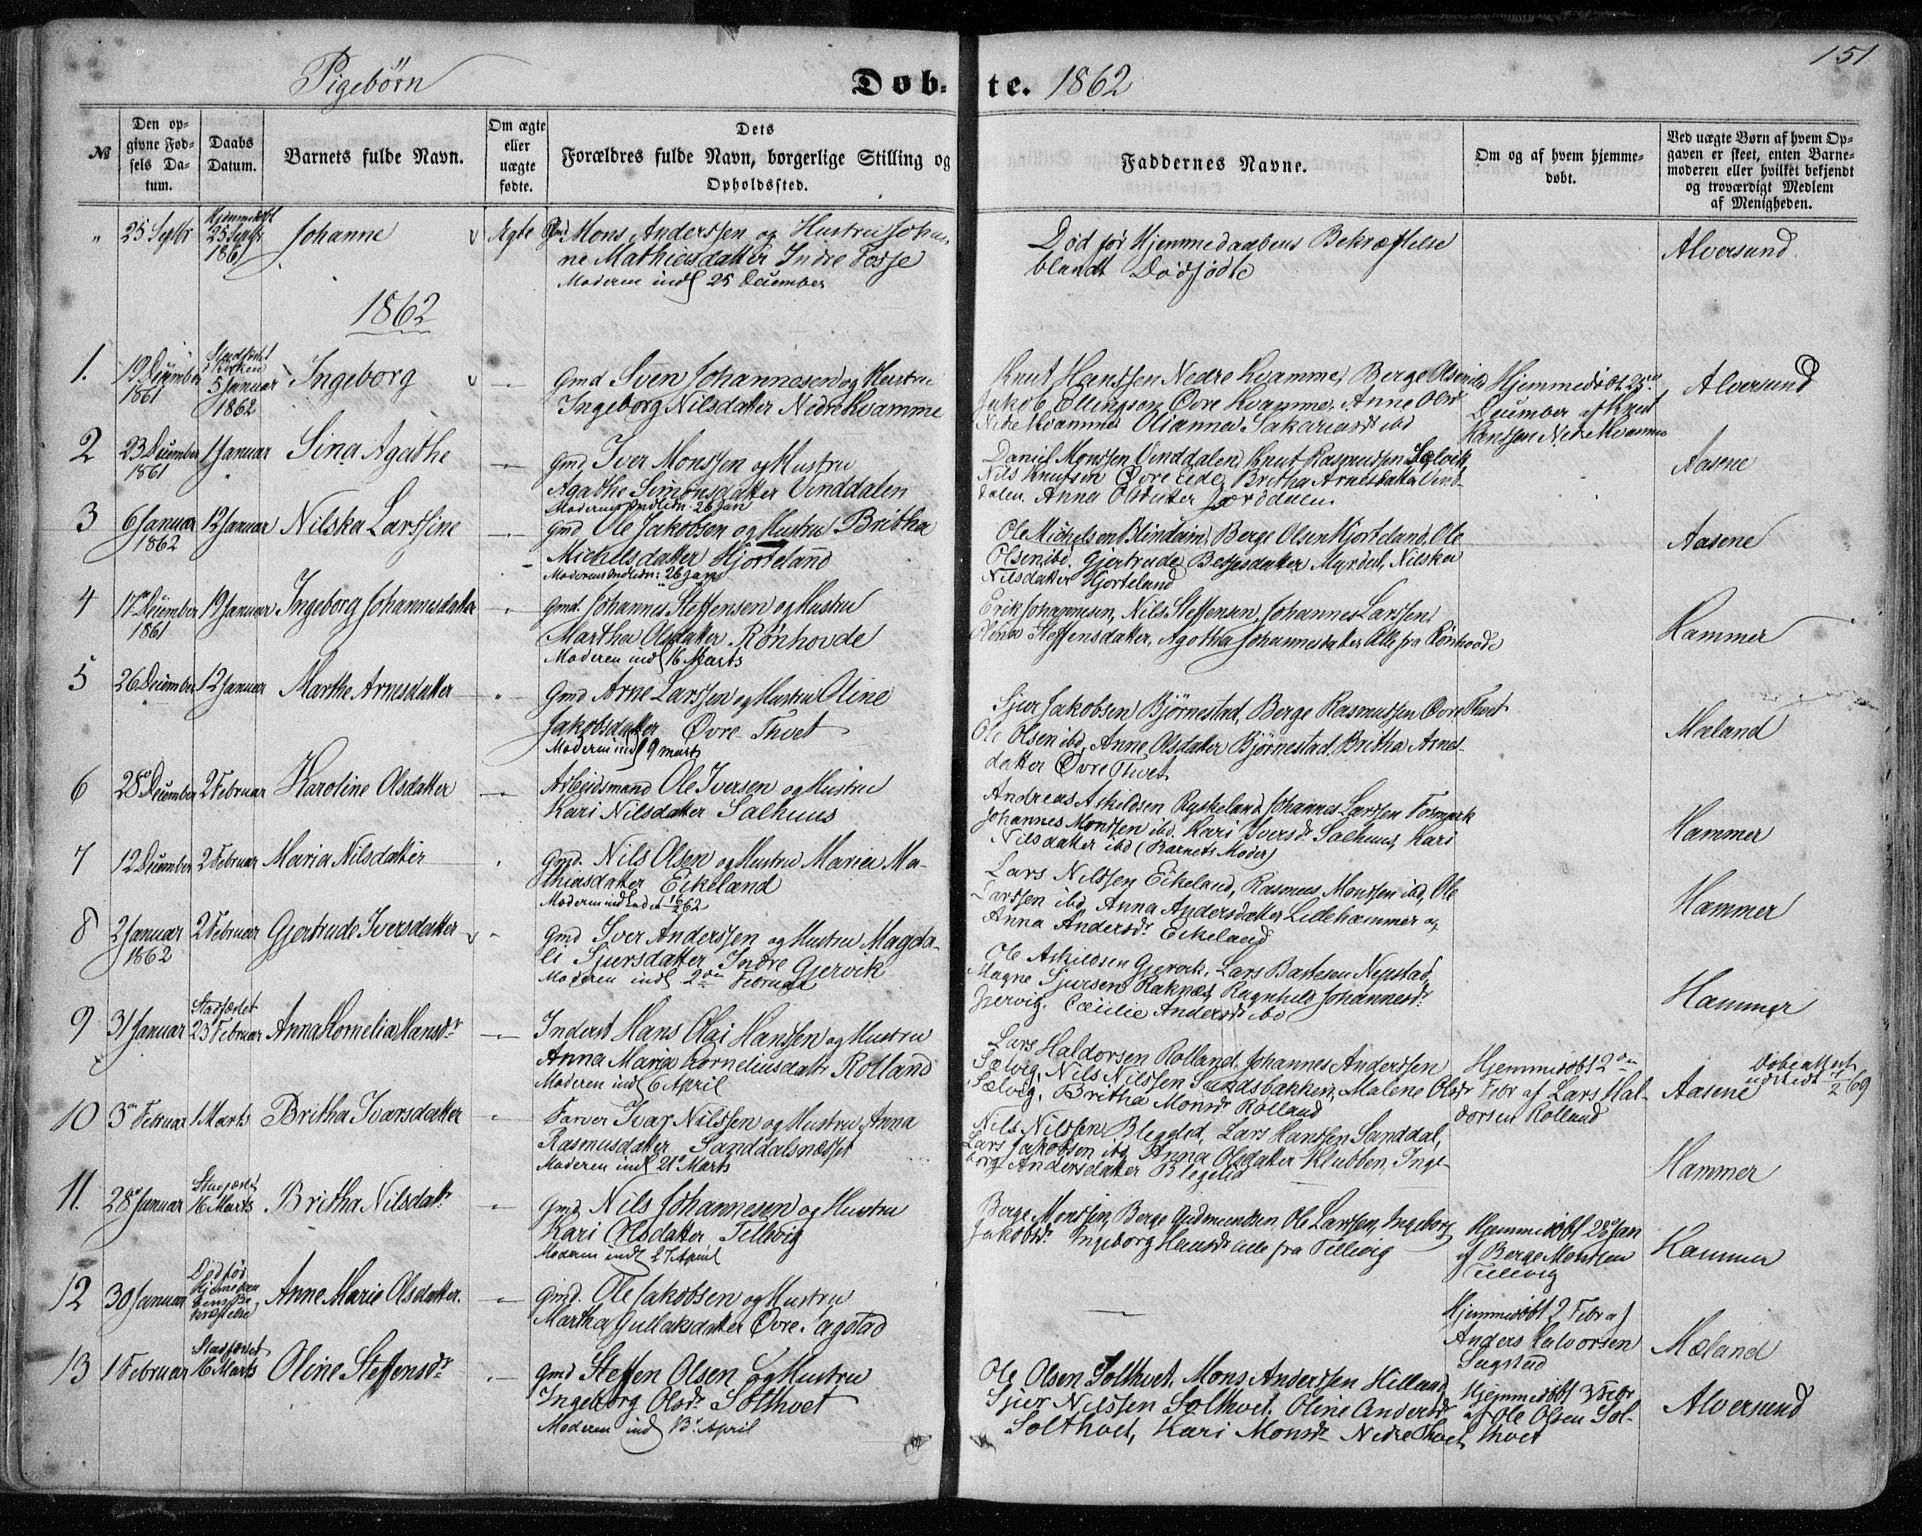 151
Pigebørn
Døb- te. 1862
№
Den op-
givne Fød-
sels Da-
tum.
Daabs
Datum.
Barnets fulde Navn.
Om ægte
eller
uægte
fødte.
Dets
Forældres fulde Navn, borgerlige Stilling og
Opholdssted.
Faddernes Navne.
Om og af hvem hjemme-
døbt.
Ved uægte Børn af hvem Op-
gaven er skeet, enten Barne-
moderen eller hvilket bekjendt
og troværdigt Medlem
af Menigheden.
" 25 Septbr
Hjemmedøbt
25 Septbr
1861
Johanne
Ægte
Gmd Mons Anderssen og Hustru Johan
ne Mathiasdatter Indre Fosse
Moderen indl 25 December
Død før Hjemmedaabens Bekræftelse
blandt Dødfødte
Alversund
1862
1.
19 December
1861
5 Januar
1862
Ingeborg
Gmd Sven Johannesen og Hustru
Ingeborg Nilsdatter Nedre Kvamme
Knut Hanssen Nedre Kvamme, Berge Olsen ibd
Jakob Ellingsen Øvre Kvamme, Anne Olsdr
Nedre Kvamme Olianna Sakariasdr ibd
Hjemmedøbt 25
December af Knut
Hanssen Nedre Kvamme
Alversund
2
23 December
1861
1 Januar
Sina Agathe
Gmd Iver Monssen og Hustru
Agathe Simonsdatter Vinddalen
Moderens Indledn. 26 Jan
Daniel Monssen Vinddalen, Knut Rasmussen Sælvik,
Nils Knutsen Øvre Eide, Britha Arnesdatter Vind-
dalen, Anna Olsdatter
Aasene
3
6 Januar
1862
12 Januar
Nilska Larssine
Gmd Ole Jakobsen og Hustru Britha
Michelsdatter Hjorteland
Moderens Indledn: 26 Jan
Ole Michelsen Blindeim, Berge Olsen Hjorteland, Ole
Olsen ibd, Gjertrude Bergesdatter Myrdal, Nilska
Nilsdatter Hjorteland
Aasene
4
17 December
1861
19 Januar
Ingeborg Johannesdatter
Gmd. Johannes Steffensen og Hustru
Martha Olsdatter Rønhovde
Moderen indl 16 Marts
Erik Johannesen, Nils Steffensen, Johannes Larssen,
Steffensdatter, Agatha Johannesdatter Alle fra Rønhovde
Hammer
5
26 December
12 Januar
Marthe Arnesdatter
Gmd Arne Larssen og Hustru Oline
Jakobsdatter Øvre Thvet
Moderen indl 9 marts
Sjur Jakobsen Bjørnestad, Berge Rasmussen Øvre Thvet
Ole Olsen ibd, Anne Olsdatter Bjørnestad, Britha Arnes-
datter Øvre Thvet
Mæland
6
28 December
2 Februar
Karoline Olsdatter
Arbeidsmand Ole Iversen og Hustru
Kari Nilsdatter Salhuus
Andreas Askildsen Ryskeland, Johannes Larssen Tormark
Johannes Monssen ibd. Kari Iversdr Salhuus, Kari
Nilsdatter ibd (Barnets Moder)
Hammer
7
12 December
2 Februar
Maria Nilsdatter
Gmd. Nils Olsen og Hustru Maria Ma-
thiasdatter Eikeland
Moderen indledet 16/2 62
Lars Nilssen Eikeland, Rasmus Monssen ibd, Ole
Larssen ibd, Anna Andersdatter Lillehammer og
Anna Andersdr Eikeland
Hammer
8
2 Januar
1862
2 Februar
Gjertrude Iversdatter
Gmd Iver Anderssen og Hustru Magda-
li Sjursdatter Indre Gjervik
Moderen indl 2den Februar
Ole Askildsen Gjervik, Lars Baresen Nepstad,
Magne Sjursen Raknæs, Ragnhild Johannesdr
Gjervig. Cæcilie Andersdr ibd
Hammer
9
31 Januar
Stadfæstet
23 Februar
Anna Kornelia Hansdr
Inderst Hans Olai Hanssen og Hustru
Anna Maria Corneliusdatr Rolland
Moderen indl 6 April
Lars Haldorsen Rolland, Johannes Anderssen
Sælvig, Nils Nilssen Sandsbakken, Malene Olsdr
Sælvig, Britha Monsdr Rolland
Hjemmedøbt 2den
Febr af Lars Hal-
dorsen Rolland
Aasene
Døbeattest
udstedt 7/2 69
10
3 Februar
1 Marts
Britha Ivarsdatter
Farver Ivar Nilssen og Hustru Anna
Rasmusdatter Sanddalsnæsset
Moderen indl 21 Marts
Nils Nilssen Blegelid, Lars Hanssen Sanddal,
Lars Jakobsen ibd, Anna Olsdatter Klubben, Inge-
borg Andersdatter Blegelid
Hammer
11.
28 Januar
Stadfæstet
16 Marts
Britha Nilsdatr
Gmd, Nils Johannesen og Hustru
Kari Olsdatter Tellevig
Moderen indl 27 April
Berge Monssen, Berge Gudmundsen Ole Larssen, Ingeborg
Jakobsdr Ingeborg Hansdr alle fra Tellevig
Hjemmedøbt 28 Jan
af Berge Monssen
Tellevig
Hammer
12
30 Januar
Død før
Hjemmedaa
bens Be
kræftelse
Anne Marie Olsdatter.
Gmd. Ole Jakobsen og Hustru
Martha Gullaksdatter Øvre Sagstad
—
Hjemmedøbt 2 Febr af
Anders Halvorsen
Sagstad
Mæland
13
1 Februar
Stadfæstet
16 Marts
Oline Steffensdr
Gmd Steffen Olsen og Hustru
Ingeborg Olsdr Solthvet
Moderen indl 13 April
Ole Olsen Solthvet, Mons Anderssen Hilland,
Sjur Nilssen Solthvet, Oline Andersdr
Solthvet, Kari Monsdr Nedre Thvet
Hjemmedøbt 3 Febr
af Ole Olsen Sol-
thvet
Alversund